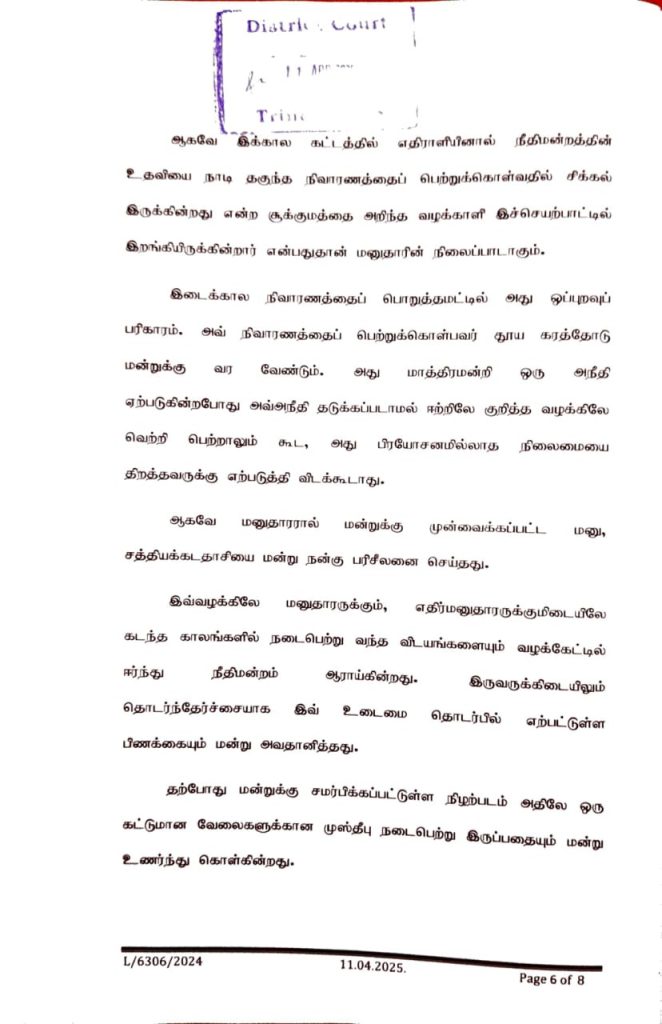 District Court
11 APR
ஆகவே இக்கால கட்டத்தில் எதிராளியினால் நீதிமன்றத்தின்
உதவியை நாடி தகுந்த நிவாரணத்தைப் பெற்றுக்கொள்வதில் சிக்கல்
இருக்கின்றது என்ற சூக்குமத்தை அறிந்த வழக்காளி இச்செயற்பாட்டில்
இறங்கியிருக்கின்றார் என்பதுதான் மனுதாரின் நிலைப்பாடாகும்.
இடைக்கால நிவாரணத்தைப் பொறுத்தமட்டில் அது ஒப்புறவுப்
பரிகாரம். அவ் நிவாரணத்தைப் பெற்றுக்கொள்பவர் தூய கரத்தோடு
மன்றுக்கு வர வேண்டும். அது மாத்திரமன்றி ஒரு அநீதி
ஏற்படுகின்றபோது அவ்அநீதி தடுக்கப்படாமல் ஈற்றிலே குறித்த வழக்கிலே
வெற்றி பெற்றாலும் கூட, அது பிரயோசனமில்லாத நிலைமையை
திறத்தவருக்கு எற்படுத்தி விடக்கூடாது.
ஆகவே மனுதாரரால் மன்றுக்கு முன்வைக்கப்பட்ட மனு,
சத்தியக்கடதாசியை மன்று நன்கு பரிசீலனை செய்தது.
இவ்வழக்கிலே மனுதாரருக்கும், எதிர்மனுதாரருக்குமிடையிலே
கடந்த காலங்களில் நடைபெற்று வந்த விடயங்களையும் வழக்கேட்டில்
ஈர்ந்து நீதிமன்றம் ஆராய்கின்றது. இருவருக்கிடையிலும்
தொடர்ந்தேர்ச்சையாக இவ் உடைமை தொடர்பில் எற்பட்டுள்ள
பிணக்கையும் மன்று அவதானித்தது.
தற்போது மன்றுக்கு சமர்பிக்கப்பட்டுள்ள நிழற்படம் அதிலே ஒரு
கட்டுமான வேலைகளுக்கான முஸ்தீபு நடைபெற்று இருப்பதையும் மன்று
உணர்ந்து கொள்கின்றது.
L/6306/2024
11.04.2025.
Page 6 of 8